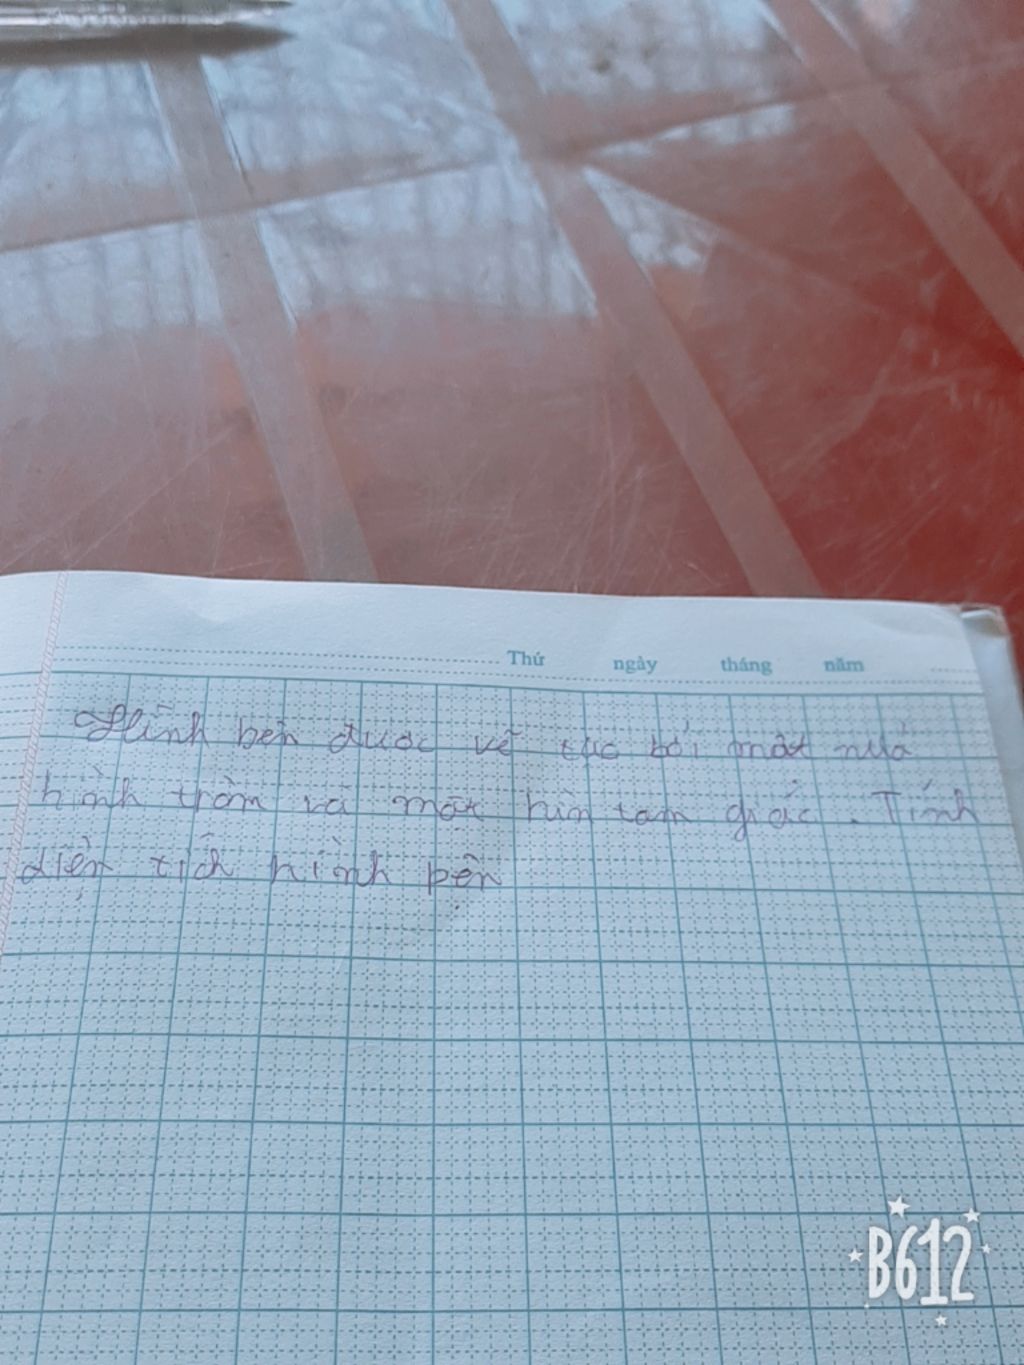 Thứ ngày tháng năm
Hình bên được vẽ tạo bởi một nửa
hình tròn và một hìn tam giác. Tính
diện tích hình bên
B612